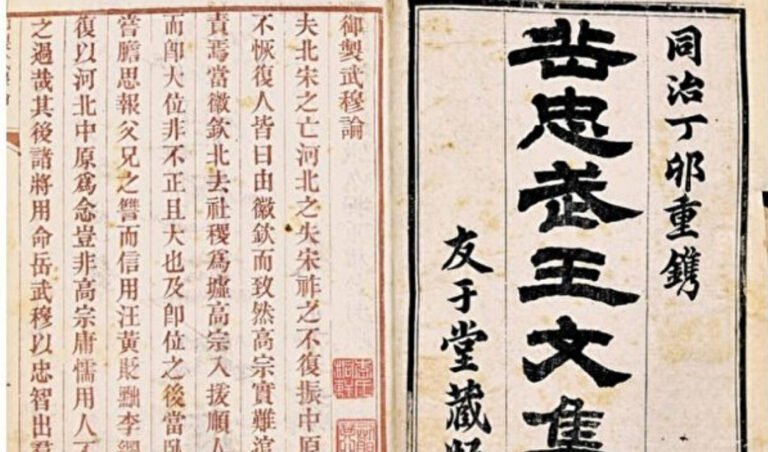 同治丁卯重鐫
岳忠武王文集
友于堂藏
御製武穆論
夫北宋之亡河北之失宋祚之不復振中原
不恢復人皆曰由徽欽而致然高宗實難逭
責焉當徽欽北去社稷為墟高宗入援順人
而卽大位非不正且大也及卽位之後當臥
嘗膽思報父兄之讐而信用汪黃貶黜李綱
復以河北中原爲念豈非高宗庸懦用人不
之過哉其後諸將用命岳武穆以忠智出羣